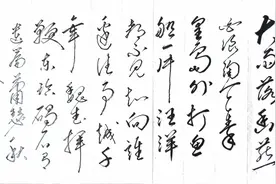 大雨落幽燕
白浪滔天秦
皇岛外打鱼
船一片汪洋
都不见知向谁
边往事越千
年魏武挥
鞭东临碣石有
遗篇萧瑟秋